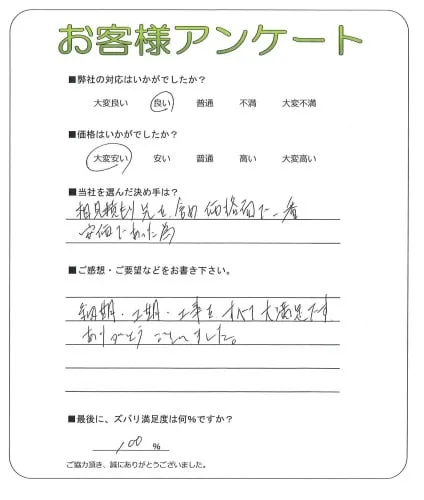 お客様アンケート
■弊社の対応はいかがでしたか？
大変良い 良い 普通 不満 大変不満
■価格はいかがでしたか？
大変安い 安い 普通 高い 大変高い
■当社を選んだ決め手は？
相見積もり先を含め価格面で一番
安価であった為
■ご感想・ご要望などをお書き下さい。
納期・工期・工事をすべて大満足です
ありがとうございました。
■最後に、ズバリ満足度は何％ですか？
100 %
ご協力頂き、誠にありがとうございました。